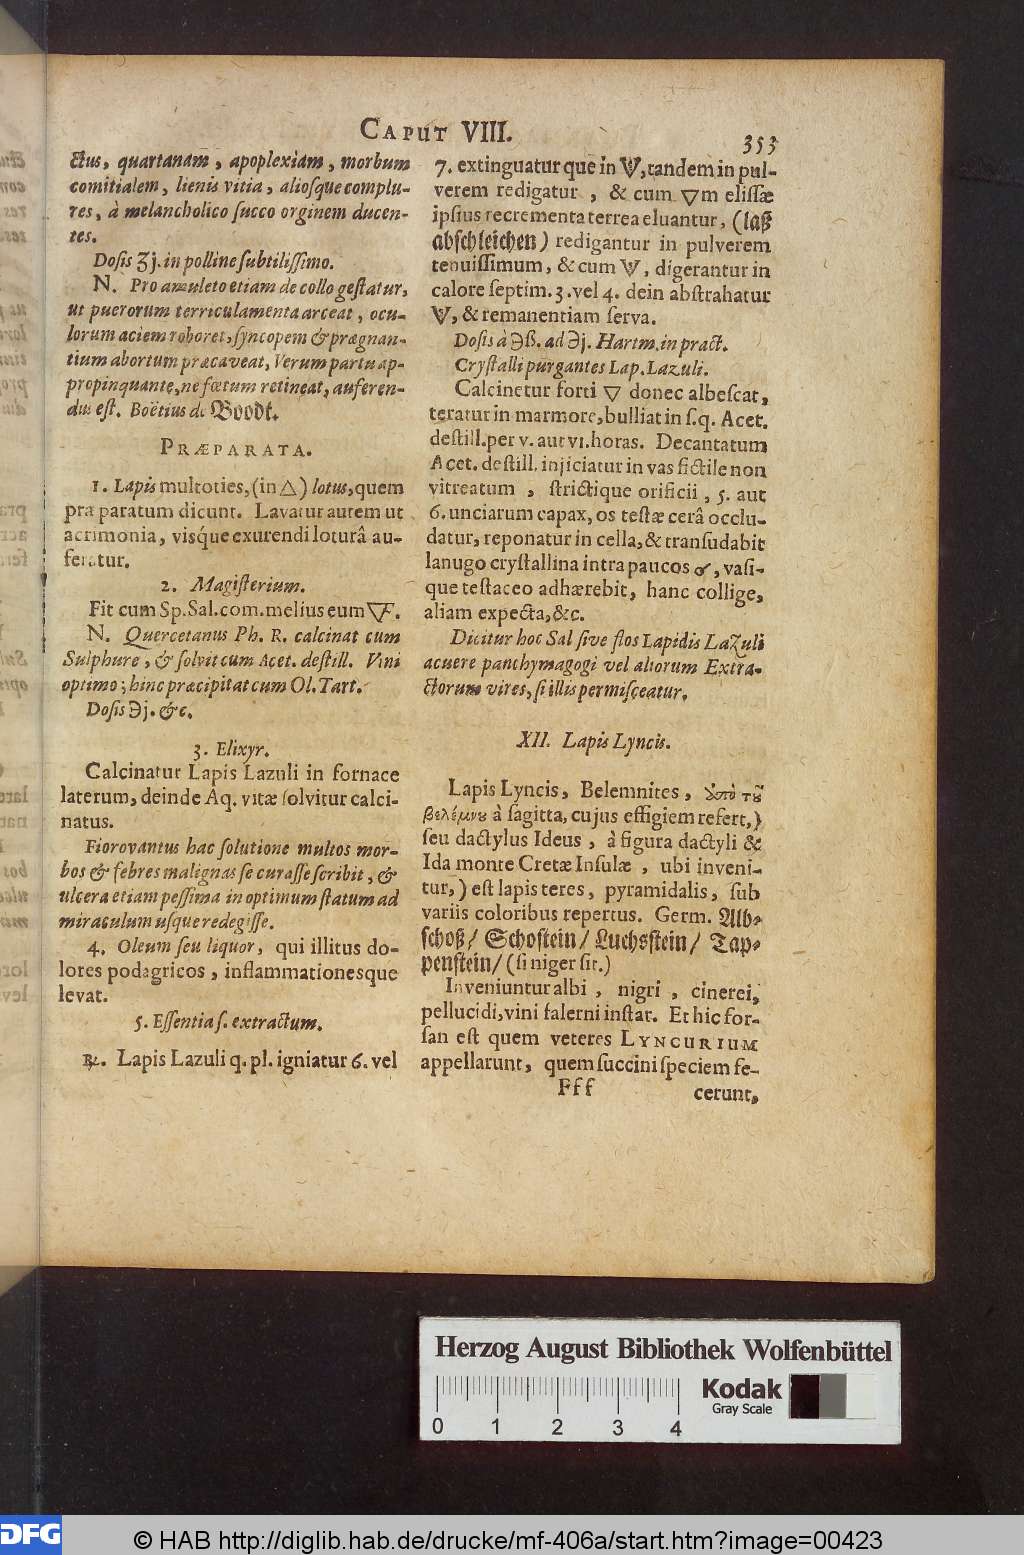 CAPUT VIII.
353
ctus, quartanam, apoplexiam, morbum
comitialem, lienis vitia, aliosque complu-
res, à melancholico succo orginem ducen-
tes.
Dosis ʒj. in polline subtilissimo.
N. Pro amuleto etiam de collo gestatur,
ut puerorum terriculamenta arceat, ocu-
lorum aciem roboret, syncopem & prægnan-
tium abortum præcaveat, Verum partu ap-
propinquante, ne fœtum retineat, auferen-
dus est. Boëtius de Boodt.
PRÆPARATA.
1. Lapis multoties, (in △) lotus, quem
præparatum dicunt. Lavatur autem ut
acrimonia, visq́ue exurendi loturâ au-
feratur.
2. Magisterium.
Fit cum Sp. Sal. com. melius eum
N. Quercetanus Ph. R. calcinat cum
Sulphure, & solvit cum Acet. destill. Vini
optimo; hinc præcipitat cum Ol. Tart.
Dosis ℈j. &c.
3. Elixyr.
Calcinatur Lapis Lazuli in fornace
laterum, deinde Aq. vitæ solvitur calci-
natus.
Fiorovantus hac solutione multos mor-
bos & febres malignas se curasse scribit, &
ulcera etiam pessima in optimum statum ad
miraculum usque redegisse.
4. Oleum seu liquor, qui illitus do-
lores podagricos, inflammationesque
levat.
5. Essentia s. extractum.
℞. Lapis Lazuli q. pl. igniatur 6. vel
7. extinguaturque in , tandem in pul-
verem redigatur, & cum ▽m elissæ
ipsius recrementa terrea eluantur, (laß
abschleichen) redigantur in pulverem
tenuissimum, & cum , digerantur in
calore septim. 3. vel 4. dein abstrahatur
, & remanentiam serva.
Dosis à ℈ß. ad ℈j. Hartm. in pract.
Crystalli purgantes Lap. Lazuli.
Calcinetur forti ▽ donec albescat,
teratur in marmore, bulliat in s.q. Acet.
destill. per v. aut vi. horas. Decantatum
Acet. destill. injiciatur in vas fictile non
vitreatum, strictique orificii, 5. aut
6. unciarum capax, os testæ cerâ occlu-
datur, reponatur in cella, & transudabit
lanugo crystallina intra paucos , vasi-
que testaceo adhærebit, hanc collige,
aliam expecta, &c.
Dicitur hoc Sal sive flos Lapidis Lazuli
acuere panchymagogi vel aliorum Extra-
ctorum vires, si illis permisceatur.
XII. Lapis Lyncis.
Lapis Lyncis, Belemnites, ἀπὸ τοῦ
βελέμνου à sagitta, cujus effigiem refert,)
seu dactylus Ideus, à figura dactyli &
Ida monte Cretæ Insulæ, ubi inveni-
tur,) est lapis teres, pyramidalis, sub
variis coloribus repertus. Germ. Alb-
schoß/ Schostein/ Luchsstein/ Tap-
penstein/ (si niger sit.)
Inveniuntur albi, nigri, cinerei,
pellucidi, vini falerni instar. Et hic for-
san est quem veteres LYNCURIUM
appellarunt, quem succini speciem fe-
Fff
cerunt,
Herzog August Bibliothek Wolfenbüttel
Kodak
Gray Scale
0 1 2 3 4
DFG
© HAB http://diglib.hab.de/drucke/mf-406a/start.htm?image=00423